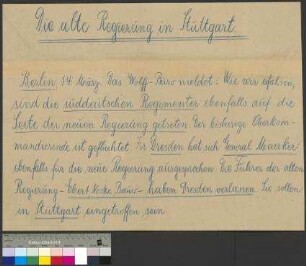 Die alte Regierung in Stuttgart.
Berlin 14. März. Das Wolff-Büro meldet: Wie wir erfahren,
sind die süddeutschen Regimenter ebenfalls auf die
Seite der neuen Regierung getreten. Der bisherige Oberkom-
mandierende ist geflüchtet. In Dresden hat sich General Maercker
ebenfalls für die neue Regierung ausgesprochen. Die Führer der alten
Regierung - Ebert Noske Bauer - haben Dresden verlassen. Sie sollen
in Stuttgart eingetroffen sein.